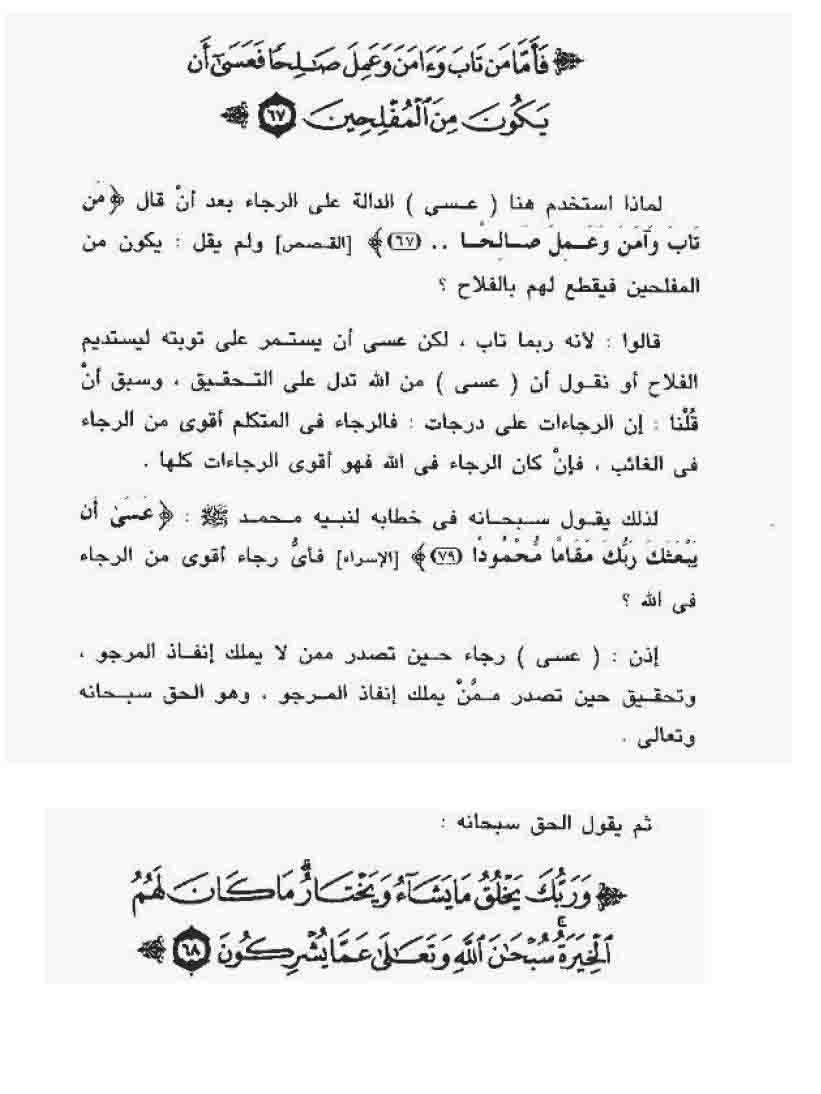 ﴿ فَأَمَّا مَن تَابَ وَءَامَنَ وَعَمِلَ صَـٰلِحًا فَعَسَىٰٓ أَن
يَكُونَ مِنَ ٱلْمُفْلِحِينَ ٦٧ ﴾
لماذا استخدم هنا ( عسى ) الدالة على الرجاء بعد أنْ قال ﴿ مَن
تَابَ وآمَنَ وَعَمِلَ صَالِحًا .. (٦٧) ﴾ [القصص] ولم يقل : يكون من
المفلحين فيقطع لهم بالفلاح ؟
قالوا : لأنه ربما تاب ، لكن عسى أن يستمر على توبته ليستديم
الفلاح أو نقول أن ( عسى ) من الله تدل على التحقيق ، وسبق أنْ
قُلْنا : إن الرجاءات على درجات : فالرجاء فى المتكلم أقوى من الرجاء
فى الغائب ، فإنْ كان الرجاء فى الله فهو أقوى الرجاءات كلها .
لذلك يقول سبحانه فى خطابه لنبيه محمد ﷺ : ﴿ عَسَىٰ أن
يَبْعَثَكَ رَبُّكَ مَقَامًا مَّحْمُودًا (٧٩) ﴾ [الإسراء] فأىُّ رجاء أقوى من الرجاء
فى الله ؟
إذن : ( عسى ) رجاء حين تصدر ممن لا يملك إنفاذ المرجو ،
وتحقيق حين تصدر ممَّنْ يملك إنفاذ المرجو ، وهو الحق سبحانه
وتعالى .
ثم يقول الحق سبحانه :
﴿ وَرَبُّكَ يَخْلُقُ مَا يَشَآءُ وَيَخْتَارُ ۗ مَا كَانَ لَهُمُ
ٱلْخِيَرَةُ ۚ سُبْحَـٰنَ ٱللَّهِ وَتَعَـٰلَىٰ عَمَّا يُشْرِكُونَ ٦٨ ﴾